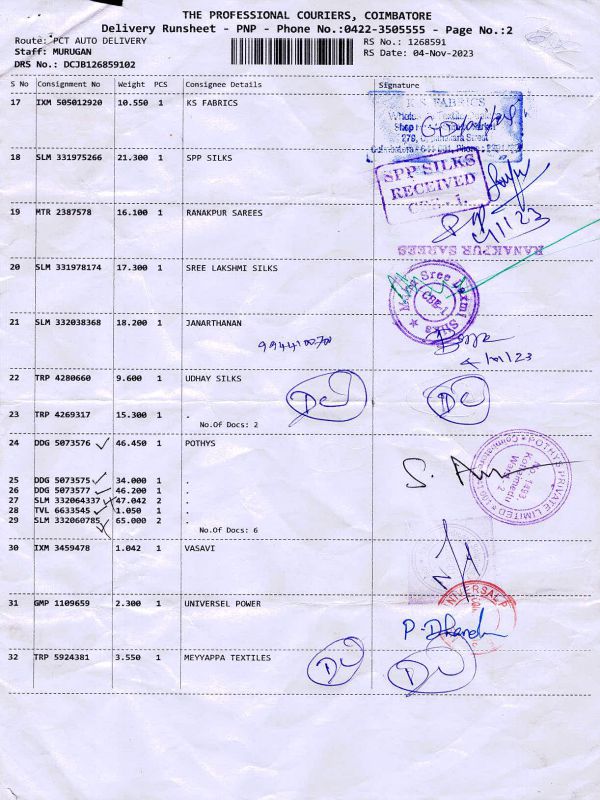 THE PROFESSIONAL COURIERS, COIMBATORE
Delivery Runsheet - PNP - Phone No.:0422-3505555 - Page No.:2
Route: PCT AUTO DELIVERY RS No.: 1268591
Staff: MURUGAN RS Date: 04-Nov-2023
DRS No.: DCJB126859102
S No Consignment No Weight PCS Consignee Details Signature
17 IXM 505012920 10.550 1 KS FABRICS
K S FABRICS
18 SLM 331975266 21.300 1 SPP SILKS
SPP SILKS
RECEIVED
CBE-1.
19 MTR 2387578 16.100 1 RANAKPUR SAREES
4/11/23
RANAKPUR SAREES
20 SLM 331978174 17.300 1 SREE LAKSHMI SILKS
CBE-1
21 SLM 332038368 18.200 1 JANARTHANAN
4/11/23
22 TRP 4280660 9.600 1 UDHAY SILKS
DC DC
23 TRP 4269317 15.300 1 .
No.Of Docs: 2
24 DDG 5073576 46.450 1 POTHYS
POTHYS PRIVATE LIMITED
25 DDG 5073575 34.000 1 .
26 DDG 5073577 46.200 1 .
27 SLM 332064337 47.042 2 .
28 TVL 6633545 1.050 1 .
29 SLM 332060785 65.000 2 .
No.Of Docs: 6
30 IXM 3459478 1.042 1 VASAVI
31 GMP 1109659 2.300 1 UNIVERSEL POWER
UNIVERSAL P
32 TRP 5924381 3.550 1 MEYYAPPA TEXTILES
DC DC